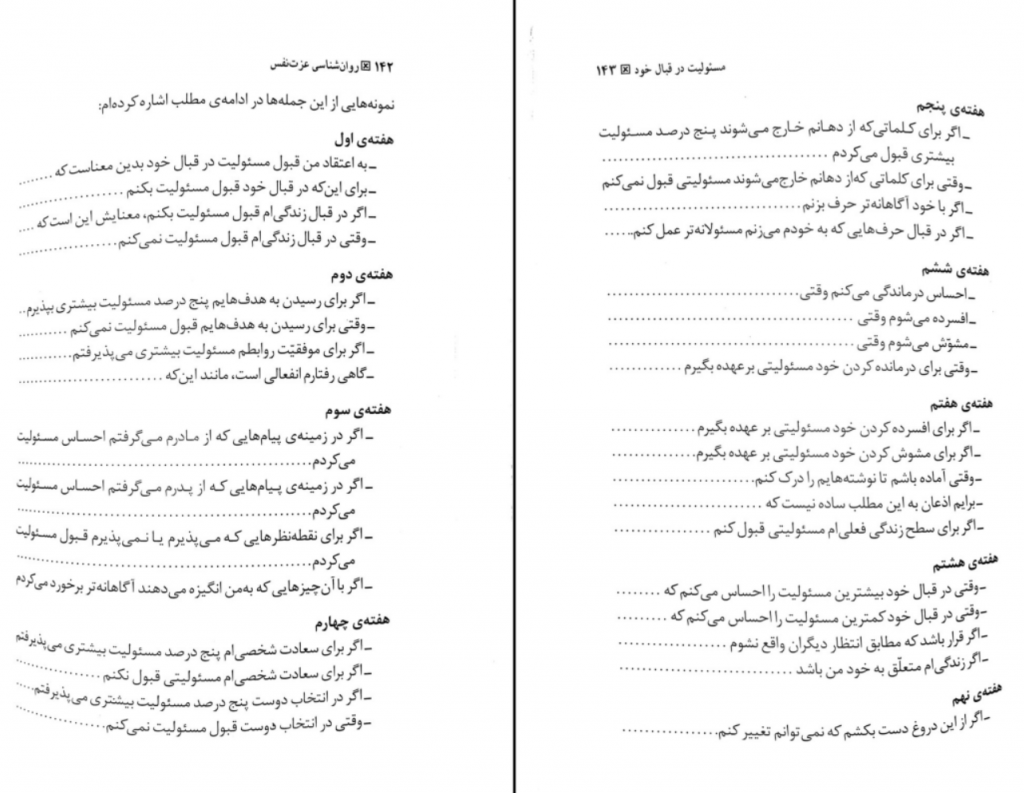 ۱۴۲ ⊠ روان‌شناسی عزت‌نفس
نمونه‌هایی از این جمله‌ها در ادامه‌ی مطلب اشاره کرده‌ام:
هفته‌ی اول
ـ به اعتقاد من قبول مسئولیت در قبال خود بدین معناست که ........
ـ برای این‌که در قبال خود قبول مسئولیت بکنم ....................
ـ اگر در قبال زندگی‌ام قبول مسئولیت بکنم، معنایش این است‌که ....
ـ وقتی در قبال زندگی‌ام قبول مسئولیت نمی‌کنم....................
هفته‌ی دوم
ـ اگر برای رسیدن به هدف‌هایم پنج درصد مسئولیت بیشتری بپذیرم..
ـ وقتی برای رسیدن به هدف‌هایم قبول مسئولیت نمی‌کنم ............
ـ اگر برای موفقیّت روابطم مسئولیت بیشتری می‌پذیرفتم.............
ـ گاهی رفتارم انفعالی است، مانند این‌که ..........................
هفته‌ی سوم
ـ اگر در زمینه‌ی پیام‌هایی که از مادرم می‌گرفتم احساس مسئولیت
می‌کردم................................................
ـ اگر در زمینه‌ی پیام‌هایی که از پدرم می‌گرفتم احساس مسئولیت
می‌کردم................................................
ـ اگر برای نقطه‌نظرهایی که می‌پذیرم یا نمی‌پذیرم قبول مسئولیت
می‌کردم................................................
ـ اگر با آن‌چیزهایی که به‌من انگیزه می‌دهند آگاهانه‌تر برخورد می‌کردم
هفته‌ی چهارم
ـ اگر برای سعادت شخصی‌ام پنج درصد مسئولیت بیشتری می‌پذیرفتم
ـ اگر برای سعادت شخصی‌ام مسئولیتی قبول نکنم ..................
ـ اگر در انتخاب دوست پنج درصد مسئولیت بیشتری می‌پذیرفتم.....
ـ وقتی در انتخاب دوست قبول مسئولیت نمی‌کنم....................
مسئولیت در قبال خود ⊠ ۱۴۳
هفته‌ی پنجم
ـ اگر برای کلماتی‌که از دهانم خارج می‌شوند پنج درصد مسئولیت
بیشتری قبول می‌کردم ....................................
ـ وقتی برای کلماتی که‌از دهانم خارج‌می‌شوند مسئولیتی قبول نمی‌کنم
ـ اگر با خود آگاهانه‌تر حرف بزنم ..............................
ـ اگر در قبال حرف‌هایی که به خودم می‌زنم مسئولانه‌تر عمل کنم......
هفته‌ی ششم
ـ احساس درماندگی می‌کنم وقتی..............................
ـ افسرده می‌شوم وقتی ......................................
ـ مشوّش می‌شوم وقتی ......................................
ـ وقتی برای درمانده کردن خود مسئولیتی برعهده بگیرم .............
هفته‌ی هفتم
ـ اگر برای افسرده کردن خود مسئولیتی بر عهده بگیرم...............
ـ اگر برای مشوش کردن خود مسئولیتی بر عهده بگیرم...............
ـ وقتی آماده باشم تا نوشته‌هایم را درک کنم......................
ـ برایم اذعان به این مطلب ساده نیست که ......................
ـ اگر برای سطح زندگی فعلی‌ام مسئولیتی قبول کنم ...............
هفته‌ی هشتم
ـ وقتی در قبال خود بیشترین مسئولیت را احساس می‌کنم که ........
ـ وقتی در قبال خود کمترین مسئولیت را احساس می‌کنم که .........
ـ اگر قرار باشد که مطابق انتظار دیگران واقع نشوم ................
ـ اگر زندگی‌ام متعلّق به خود من باشد ...........................
هفته‌ی نهم
ـ اگر از این دروغ دست بکشم که نمی‌توانم تغییر کنم................